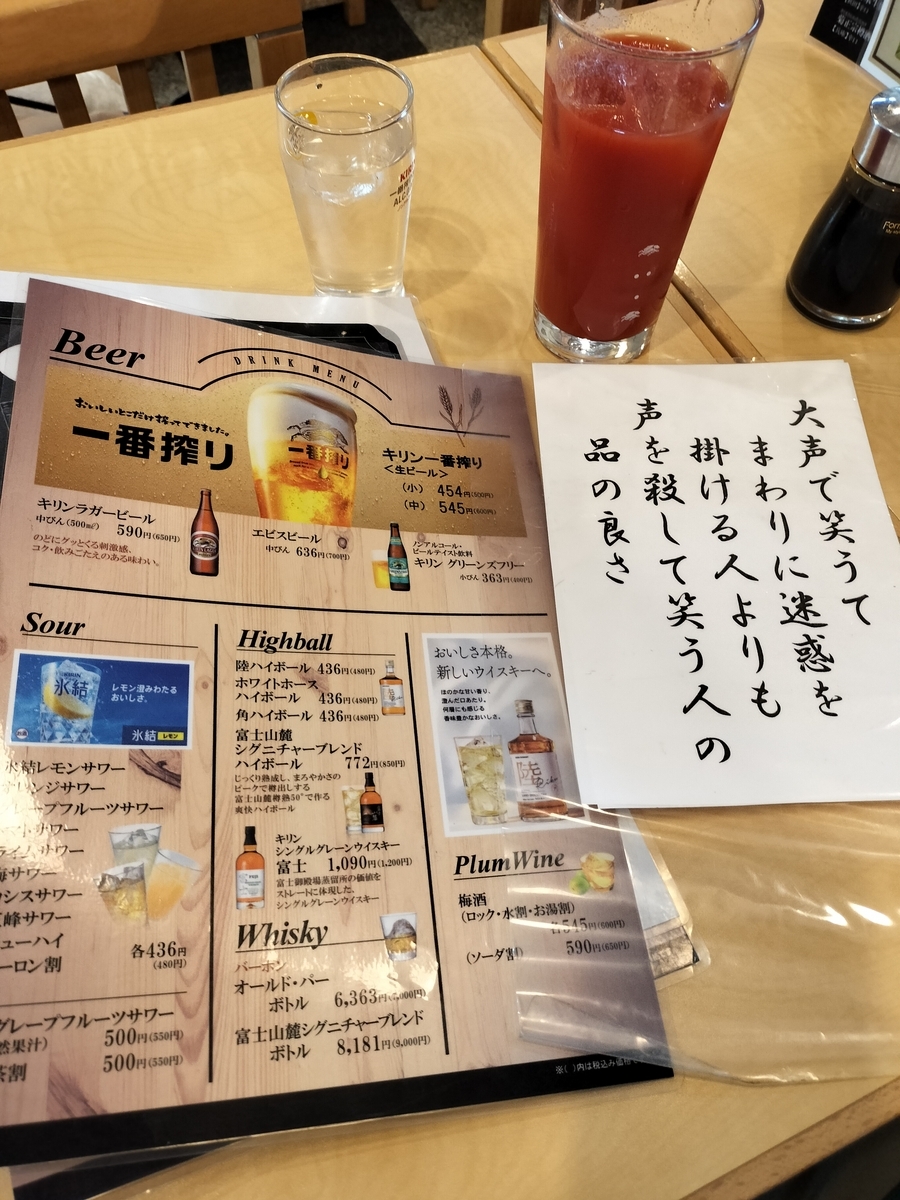 Beer
DRINK MENU
おいしいとこだけ搾ってできました。
一番搾り
一番搾り
キリン一番搾り
<生ビール>
(小) 454円(500円)
(中) 545円(600円)
キリンラガービール
中びん(500㎖) 590円(650円)
のどにグッとくる刺激感、
コク・飲みごたえのある味わい。
エビスビール
中びん 636円(700円)
ノンアルコール・
ビールテイスト飲料
キリン グリーンズフリー
小びん 363円(400円)
Sour
KIRIN
氷結
レモン澄みわたる
おいしさ。
お酒
氷結 レモン
氷結レモンサワー
レンジサワー
ープフルーツサワー
サワー
サワー
サワー
シスサワー
峰サワー
ューハイ
ーロン割
各436円
(480円)
グレープフルーツサワー
然果汁) 500円(550円)
茶割 500円(550円)
Highball
陸ハイボール 436円(480円)
ホワイトホース
ハイボール 436円(480円)
角ハイボール 436円(480円)
富士山麓
シグニチャーブレンド
ハイボール 772円(850円)
じっくり熟成し、まろやかさの
ピークで樽出しする
富士山麓樽熟50°で作る
爽快ハイボール
キリン
シングルグレーンウイスキー
富士 1,090円(1,200円)
富士御殿場蒸留所の価値を
ストレートに体現した、
シングルグレーンウイスキー
Whisky
バーボン
オールド・パー
ボトル 6,363円(7,000円)
富士山麓シグニチャーブレンド
ボトル 8,181円(9,000円)
おいしさ本格。
新しいウイスキーへ。
ほのかな甘い香り。
澄んだ口あたり。
何層にも感じる
香味豊かなおいしさ。
陸
PlumWine
梅酒
(ロック・水割・お湯割)
各545円(600円)
(ソーダ割) 590円(650円)
※( )内は税込み価格
大声で笑うて
まわりに迷惑を
掛ける人よりも
声を殺して笑う人の
品の良さ